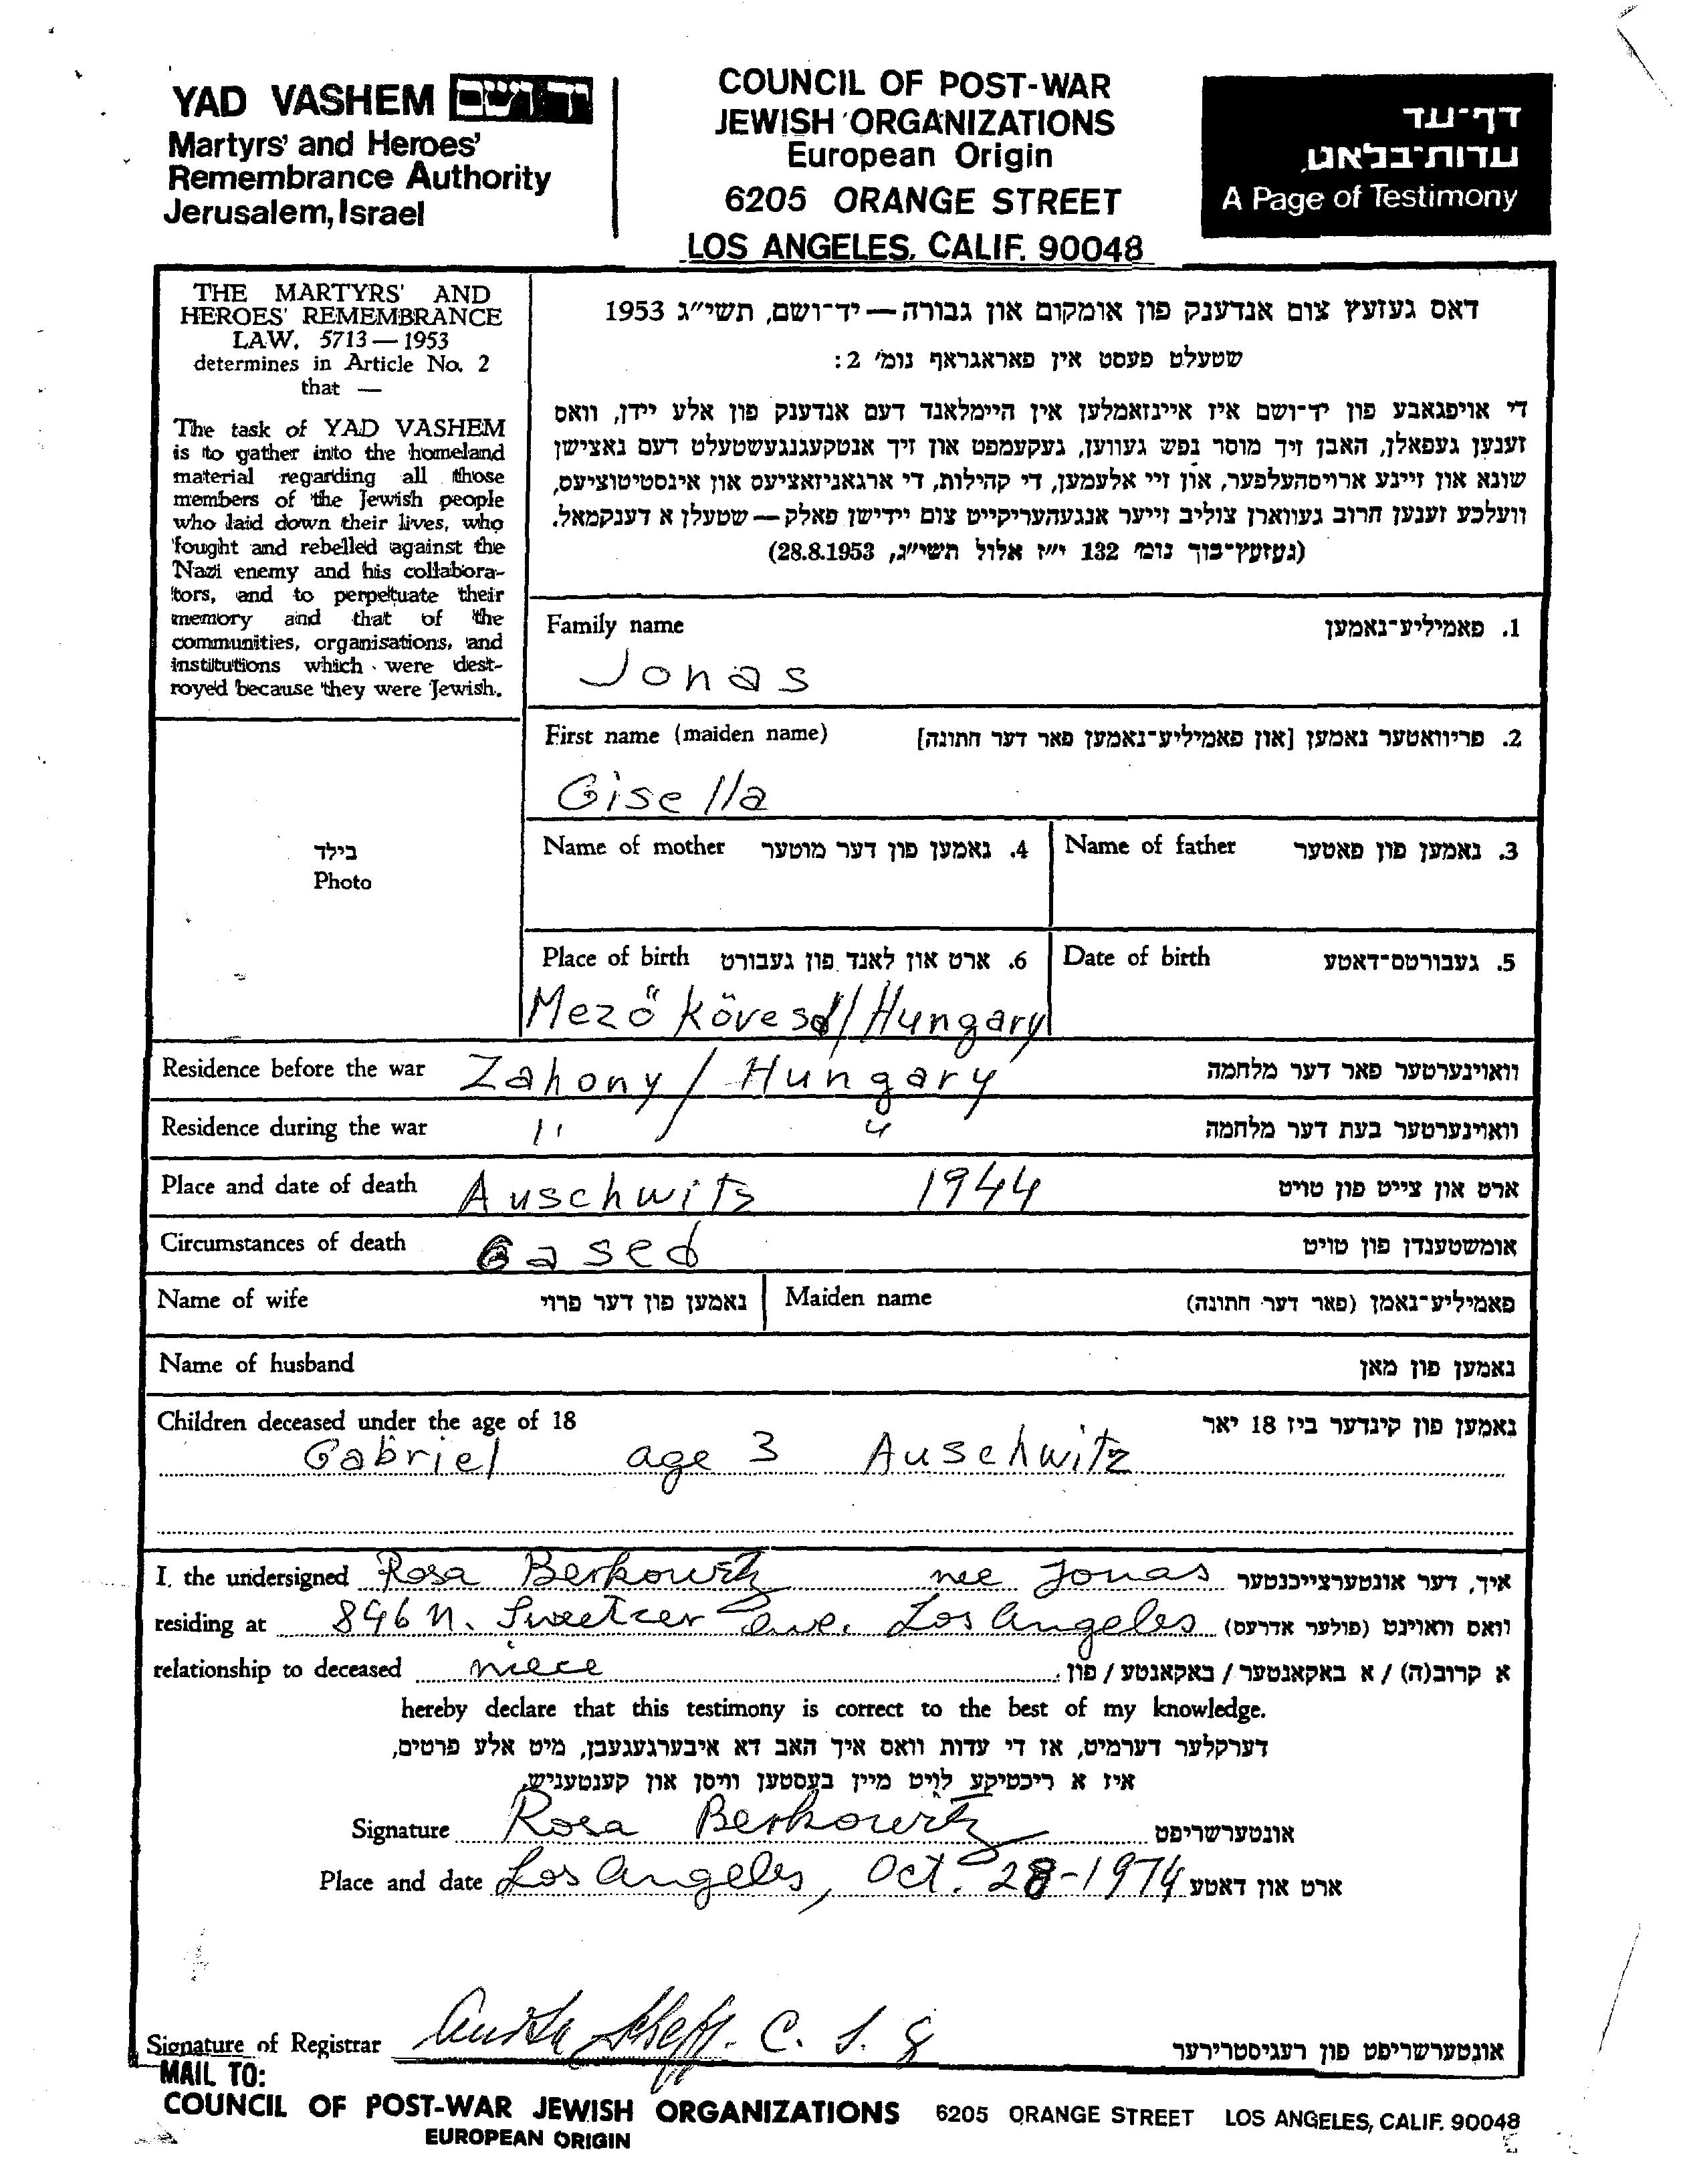 YAD VASHEM יד ושם
Martyrs' and Heroes'
Remembrance Authority
Jerusalem, Israel
COUNCIL OF POST-WAR
JEWISH ORGANIZATIONS
European Origin
6205 ORANGE STREET
LOS ANGELES, CALIF. 90048
דף-עד
עדות-בלאט
A Page of Testimony
THE MARTYRS' AND
HEROES' REMEMBRANCE
LAW, 5713—1953
determines in Article No. 2
that —
The task of YAD VASHEM
is to gather into the homeland
material regarding all those
members of the Jewish people
who laid down their lives, who
fought and rebelled against the
Nazi enemy and his collabora-
tors, and to perpetuate their
memory and that of the
communities, organisations, and
institutions which were dest-
royed because they were Jewish.
דאס געזעץ צום אנדענק פון אומקום און גבורה — יד-ושם, תשי״ג 1953
שטעלט פעסט אין פאראגראף נומ׳ 2:
די אויפגאבע פון יד-ושם איז איינזאמלען אין היימלאנד דעם אנדענק פון אלע יידן, וואס
זענען געפאלן, האבן זיך מוסר נפש געווען, געקעמפט און זיך אנטקעגנגעשטעלט דעם נאצישן
שונא און זיינע ארויסהעלפער, און זיי אלעמען, די קהילות, די ארגאניזאציעס און אינסטיטוציעס,
וועלכע זענען חרוב געווארן צוליב זייער אנגעהעריקייט צום יידישן פאלק — שטעלן א דענקמאל.
(געזעץ-בוך נומ׳ 132 י״ז אלול תשי״ג, 28.8.1953)
Family name 1. פאמיליע-נאמען
Jonas
First name (maiden name) 2. פריוואטער נאמען [און פאמיליע-נאמען פאר דער חתונה]
Gisella
בילד
Photo
Name of mother 4. נאמען פון דער מוטער
Name of father 3. נאמען פון פאטער
Place of birth 6. ארט און לאנד פון געבורט
Mező Kövesd/Hungary
Date of birth 5. געבורטס-דאטע
Residence before the war Zahony / Hungary וואוינערטער פאר דער מלחמה
Residence during the war " " וואוינערטער בעת דער מלחמה
Place and date of death Auschwitz 1944 ארט און צייט פון טויט
Circumstances of death Gased אומשטענדן פון טויט
Name of wife נאמען פון דער פרוי Maiden name פאמיליע-נאמן (פאר דער חתונה)
Name of husband נאמען פון מאן
Children deceased under the age of 18 נאמען פון קינדער ביז 18 יאר
Gabriel age 3 Auschwitz
I, the undersigned Rosa Berkowitz nee Jonas איך, דער אונטערצייכנטער
residing at 846 N. Sweetzer Ave. Los Angeles וואס וואוינט (פולער אדרעס)
relationship to deceased niece א קרוב(ה) / א באקאנטער / באקאנטע / פון:
hereby declare that this testimony is correct to the best of my knowledge.
דערקלער דערמיט, אז די עדות וואס איך האב דא איבערגעגעבן, מיט אלע פרטים,
איז א ריכטיקע לויט מיין בעסטען וויסן און קענטעניש.
Signature Rosa Berkowitz אונטערשריפט
Place and date Los Angeles, Oct. 28-1974 ארט און דאטע
Signature of Registrar אונטערשריפט פון רעגיסטרירער
MAIL TO:
COUNCIL OF POST-WAR JEWISH ORGANIZATIONS 6205 ORANGE STREET LOS ANGELES, CALIF. 90048
EUROPEAN ORIGIN